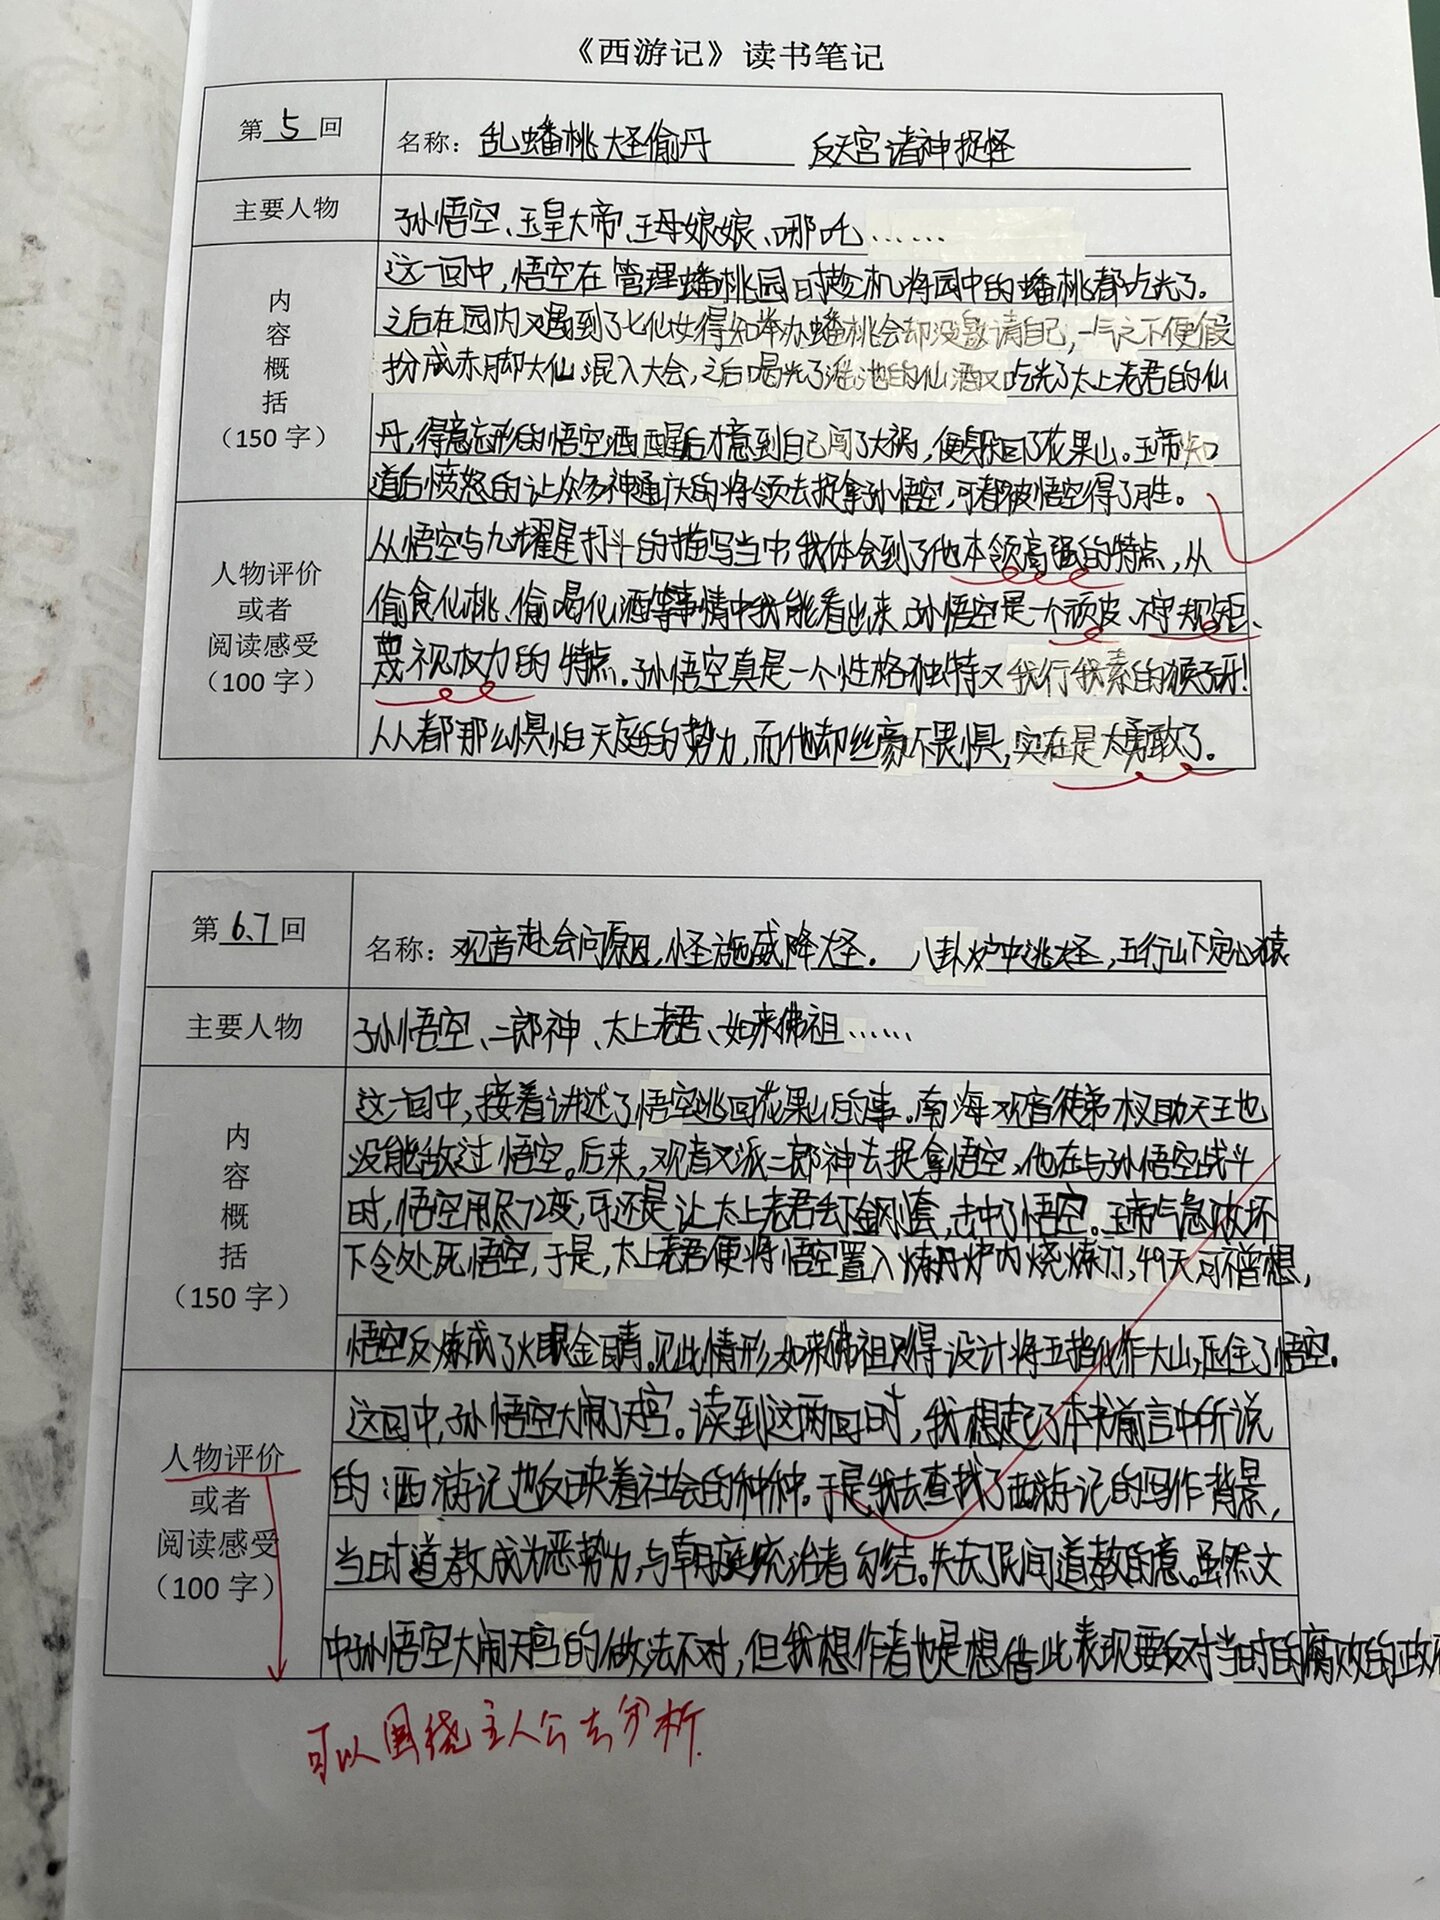 《西游记》读书笔记
第 5 回
名称：乱蟠桃大圣偷丹 反天宫诸神捉怪
主要人物
孙悟空、玉皇大帝、王母娘娘、哪吒……
内容概括（150 字）
这一回中，悟空在管理蟠桃园时趁机将园中的蟠桃都吃光了。
之后在园内又遇到了七仙女得知举办蟠桃会却没邀请自己，一气之下便假
扮成赤脚大仙混入大会，之后喝光了瑶池的仙酒又吃光了太上老君的仙
丹，得意忘形的悟空酒醒后才意到自己闯了大祸，便躲回了花果山。玉帝知
道后愤怒的让众多神通广大的将领去捉拿孙悟空，可都被悟空得了胜。
人物评价
或者
阅读感受
（100 字）
从悟空与九耀星打斗的描写当中我体会到了他本领高强的特点，从
偷食仙桃、偷喝仙酒等事情中我能看出来孙悟空是一个顽皮、不守规矩、
蔑视权力的特点。孙悟空真是一个性格独特又我行我素的猴子呀！
人人都那么惧怕天庭的势力，而他却丝毫不畏惧，实在是太勇敢了。
第 6、7 回
名称：观音赴会问原因，怪施威降大圣。 八卦炉中逃大圣，五行山下定心猿
主要人物
孙悟空、二郎神、太上老君、如来佛祖……
内容概括（150 字）
这一回中，接着讲述了悟空逃回花果山的事。南海观音徒弟权助天王也
没能敌过悟空。后来，观音又派二郎神去捉拿悟空，他在与孙悟空战斗
时，悟空用尽72变，可还是让太上老君丢下金刚套，击中了悟空。玉帝气急败坏
下令处死悟空，于是，太上老君便将悟空置入炼丹炉内烧炼了，49天可不曾想，
悟空反炼成了火眼金睛。见此情形，如来佛祖只得设计将五指化作大山，压住了悟空。
人物评价
或者
阅读感受
（100 字）
这回中，孙悟空大闹了天宫。读到这两回时，我想起了本书前言中所说
的：西游记也反映着社会的种种。于是，我去查找了西游记的写作背景，
当时道教成为恶势力，与朝庭统治者勾结。失去了民间道教的意。虽然文
中孙悟空大闹天宫的做法不对，但我想作者也是想借此表现要反对当时的腐败的政府
可以围绕主人公去分析.